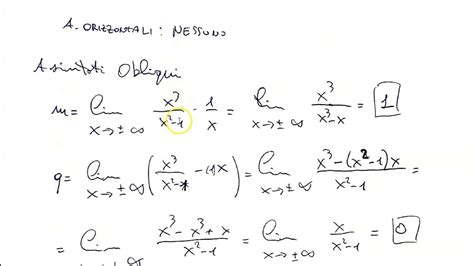 A. ORIZZONTALI: NESSUNO
Asintoti Obliqui
m = lim x→±∞ x³/(x²-1) · 1/x = lim x→±∞ x³/(x³-x) = 1
q = lim x→±∞ (x³/(x²-1) - 1x) = lim x→±∞ (x³-(x²-1)x)/(x²-1) =
= lim x→±∞ (x³-x³+x)/(x²-1) = lim x→±∞ x/(x²-1) = 0